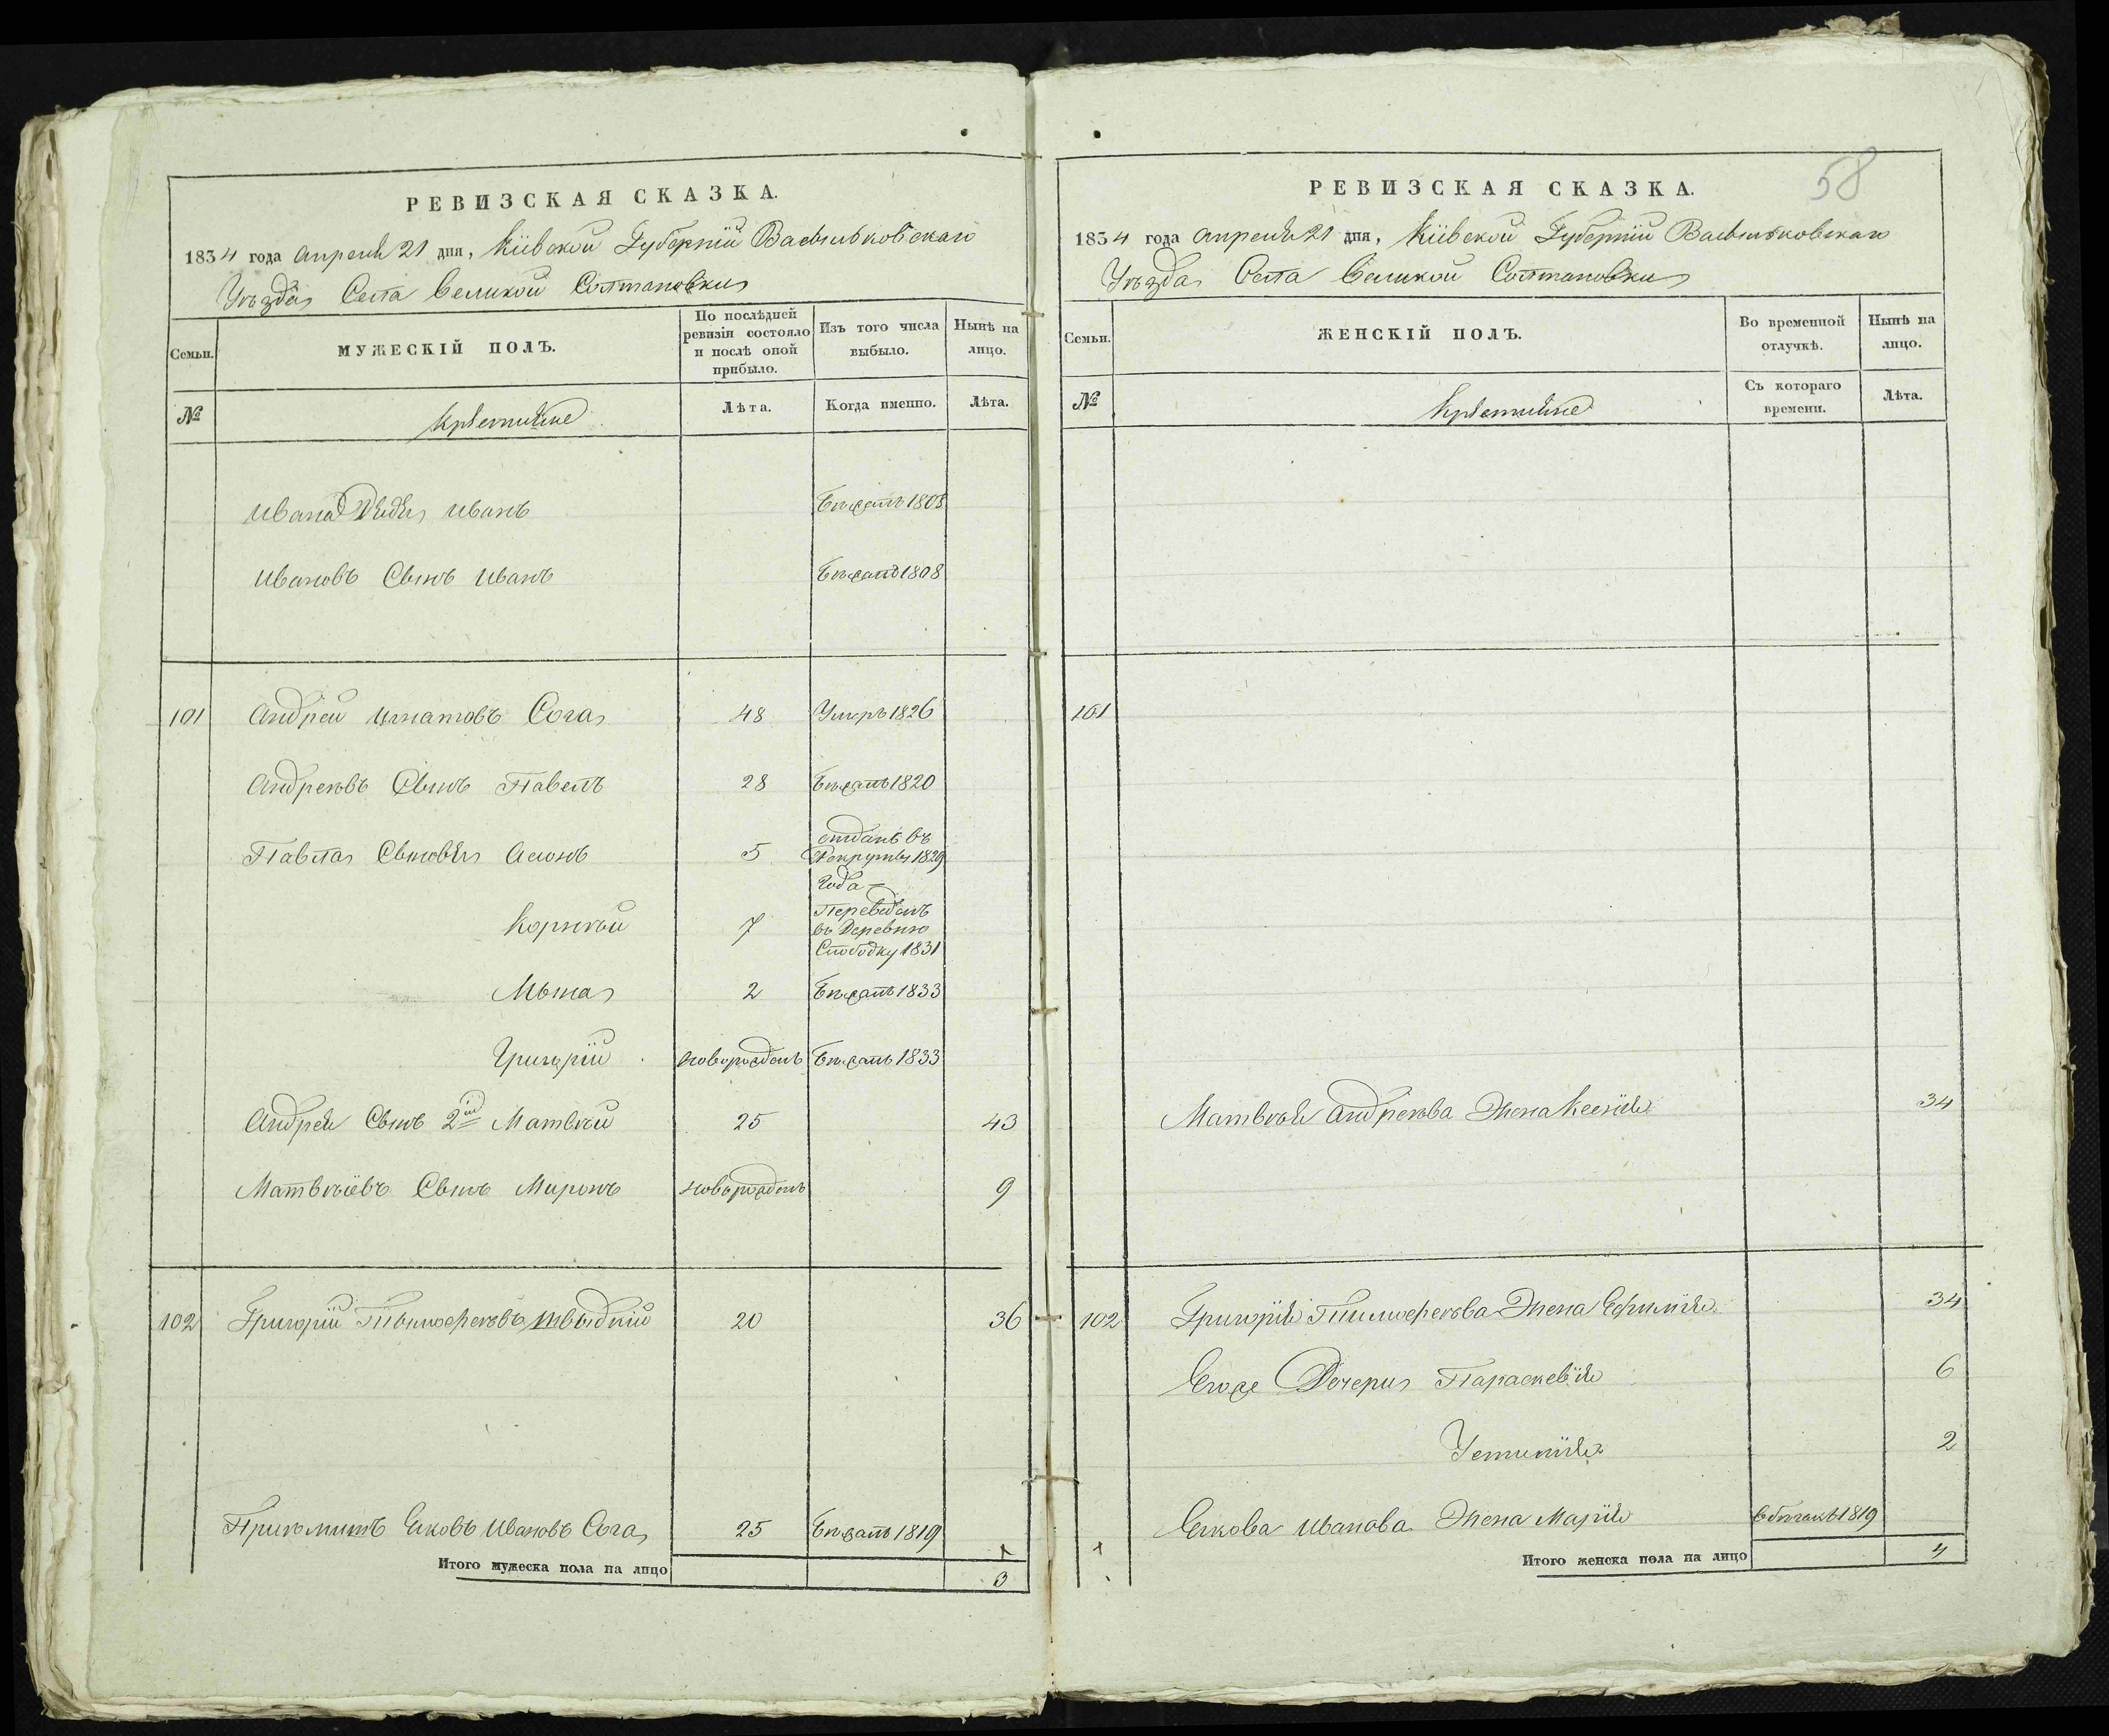 РЕВИЗСКАЯ СКАЗКА.
1834 года Апреля 21 дня, Кіевской Губерніи Васильковскаго
Уѣзда Села Великой Солтановки
Семьи.
МУЖЕСКІЙ ПОЛЪ.
По послѣдней ревизіи состояло и послѣ оной прибыло.
Изъ того числа выбыло.
Нынѣ на лицо.
№
Крестьяне
Лѣта.
Когда именно.
Лѣта.
Ивана Дядя Иванъ Бѣжалъ 1808
Ивановъ Сынъ Иванъ Бѣжалъ 1808
101 Андрей Игнатовъ Сога 48 Умеръ 1826
Андреевъ Сынъ Павелъ 28 Бѣжалъ 1820
Павла Сыновья 5 отданъ въ
Рекруты 1829
года
Корнѣй 7 Переведенъ
въ Деревню
Слободку 1831
2 Бѣжалъ 1833
Григорій новорожденъ Бѣжалъ 1833
Андрея Сынъ 2й Матвѣй 25 43
Матвѣевъ Сынъ Миронъ новорожденъ 9
102 Григорій Тимофеевъ Швыдкій 20 36
Яковъ Ивановъ Сога 25 Бѣжалъ 1819
Итого мужеска пола на лицо 3
58
РЕВИЗСКАЯ СКАЗКА.
1834 года Апреля 21 дня, Кіевской Губерніи Васильковскаго
Уѣзда Села Великой Солтановки
Семьи.
ЖЕНСКІЙ ПОЛЪ.
Во временной отлучкѣ.
Нынѣ на лицо.
№
Крестьяне
Съ котораго времени.
Лѣта.
101
Матвѣя Андреева Жена Ксенія 34
102 Григорія Тимофеева Жена Ефимія 34
Его же Дочери Параскевія 6
Устинія 2
Якова Иванова Жена Марія въ бѣгахъ 1819
Итого женска пола на лицо 4